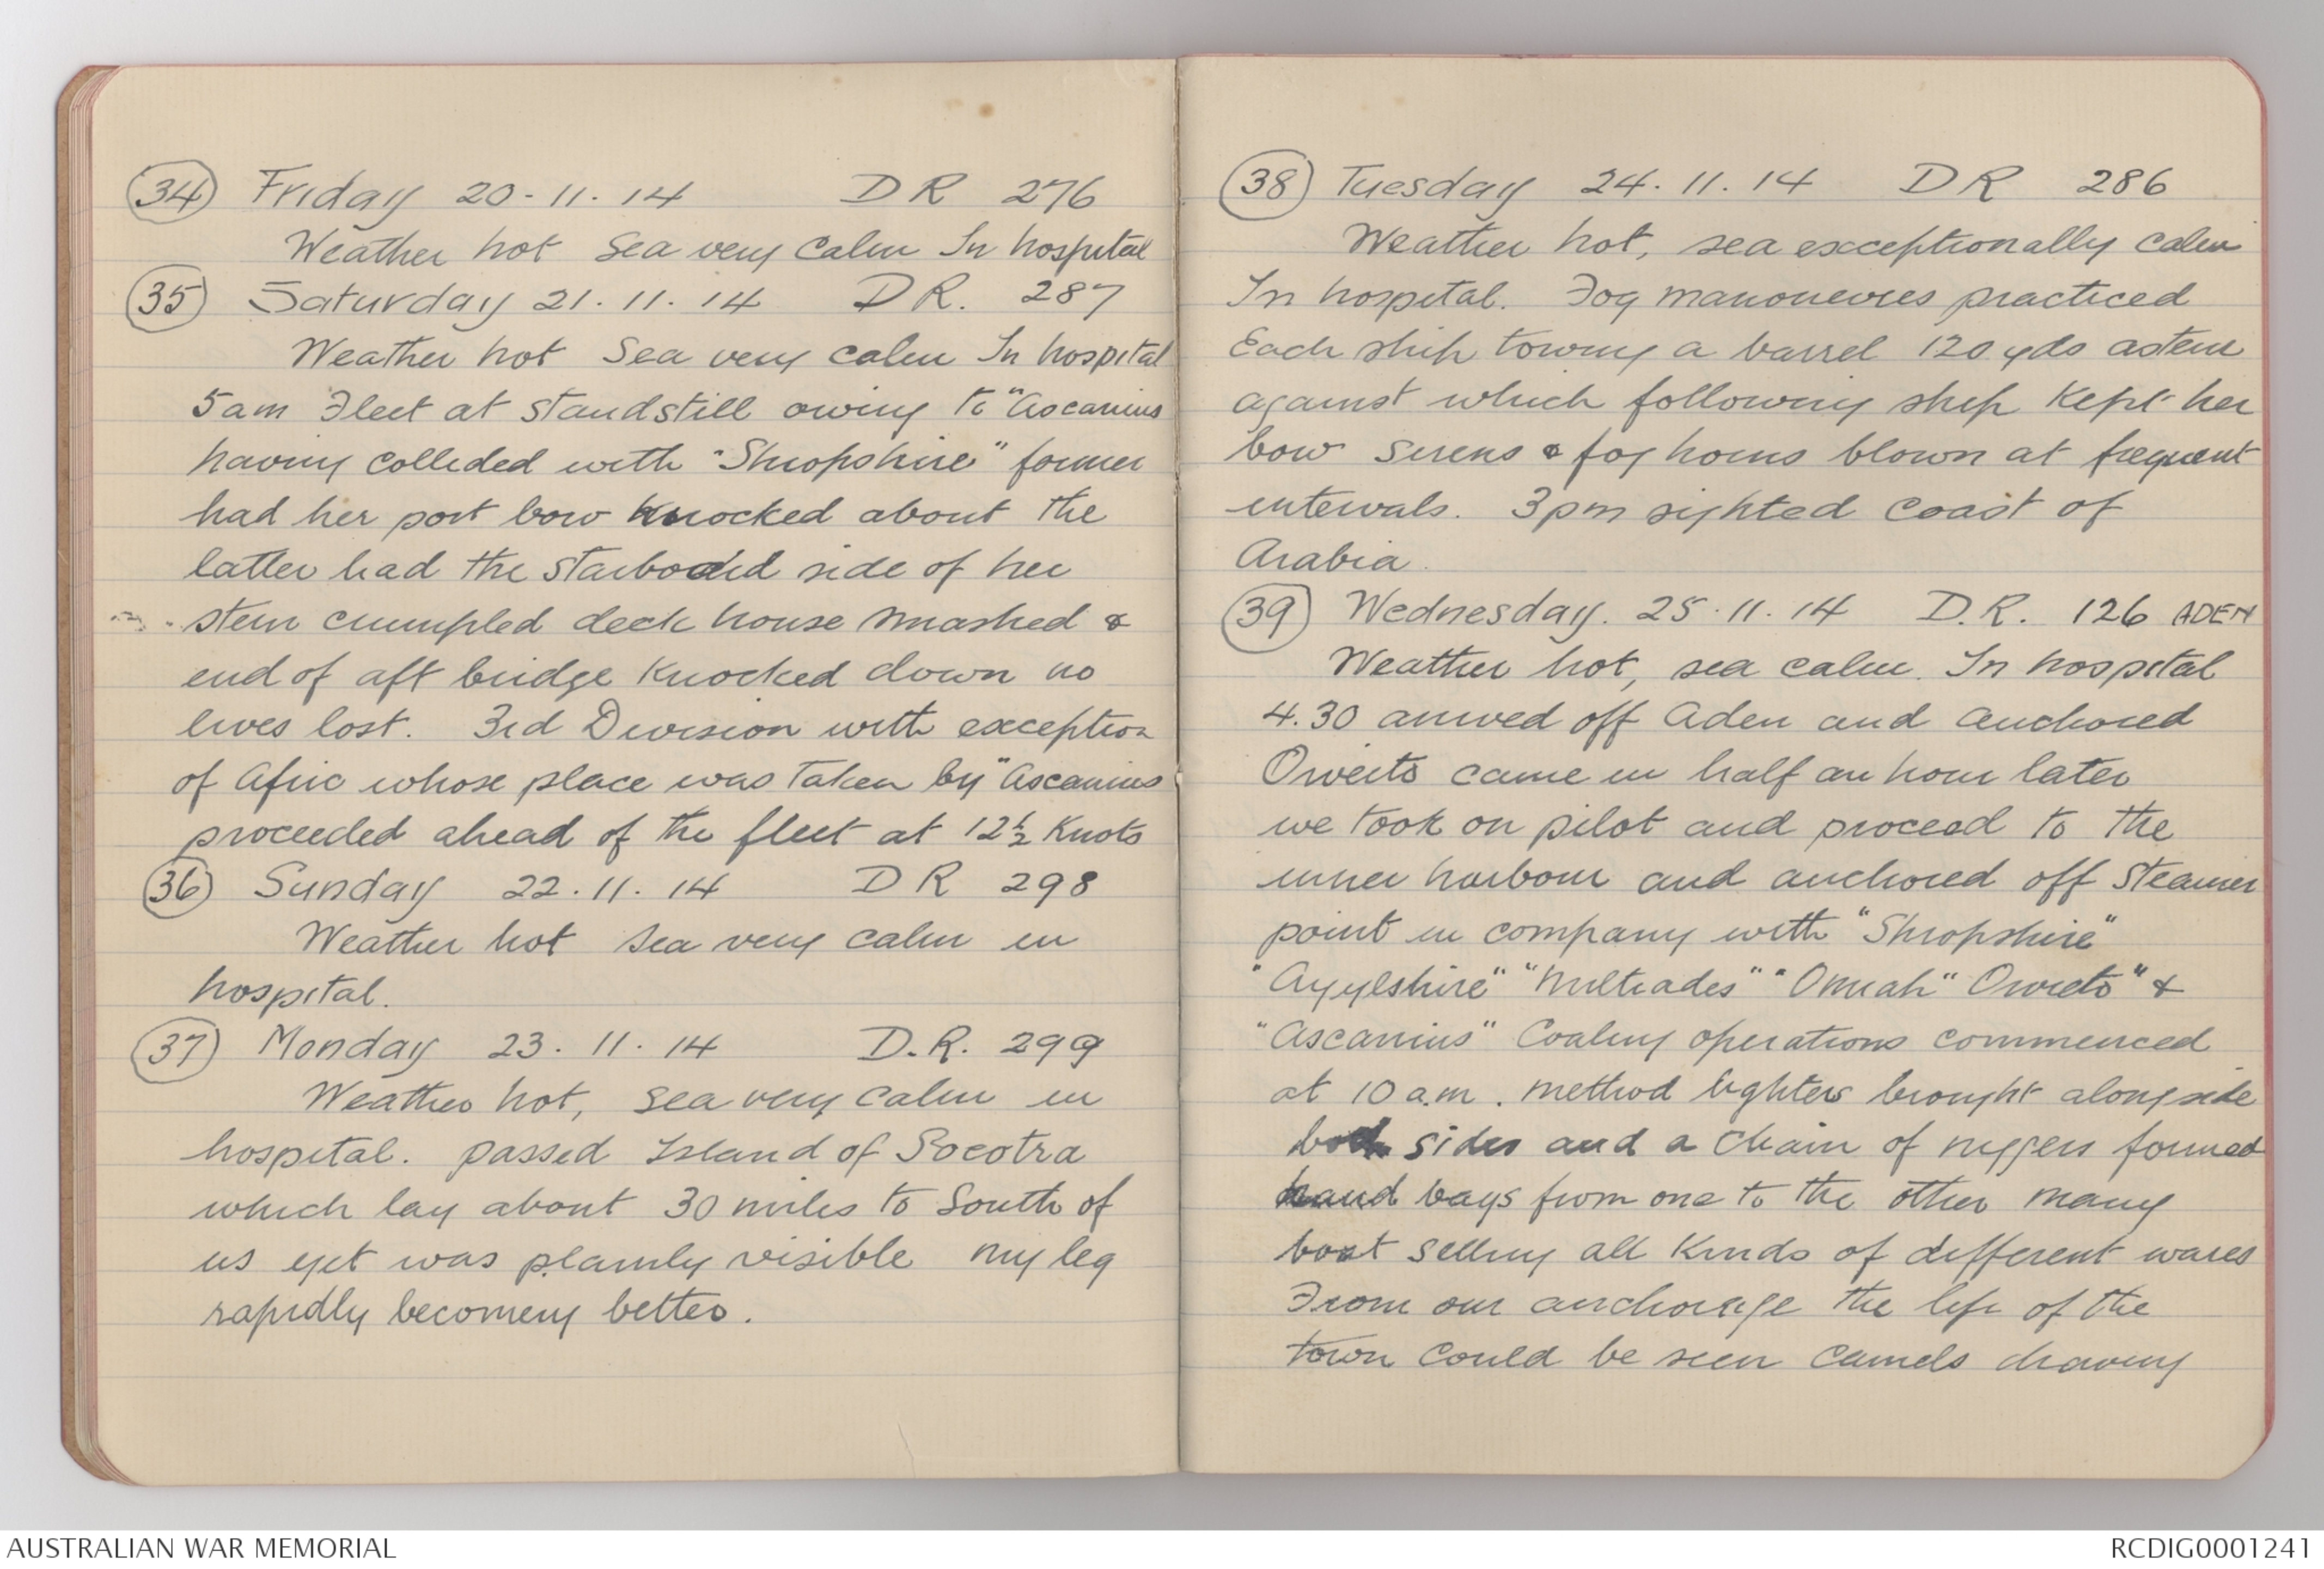 (34) Friday 20-11.14 DR 276
Weather hot Sea very Calm In hospital
(35) Saturday 21.11.14 DR. 287
Weather hot Sea very calm In hospital
5am Fleet at standstill owing to "Ascanius
having collided with "Shropshire" former
had her port bow knocked about the
latter had the starboard side of her
stern crumpled deck house smashed &
end of aft bridge knocked down no
lives lost. 3rd Division with exception
of Afric whose place was taken by "Ascanius
proceeded ahead of the fleet at 12½ Knots
(36) Sunday 22.11.14 DR 298
Weather hot sea very calm in
hospital.
(37) Monday 23.11.14 D.R. 299
Weather hot, sea very calm in
hospital. passed Island of Socotra
which lay about 30 miles to South of
us yet was plainly visible my leg
rapidly becoming better.
(38) Tuesday 24.11.14 DR 286
Weather hot, sea exceptionally calm
In hospital. Fog manouevres practiced
Each ship towing a barrel 120 yds astern
against which following ship kept her
bow sirens & fog horns blown at frequent
intervals. 3pm sighted coast of
Arabia.
(39) Wednesday. 25.11.14 D.R. 126 ADEN
Weather hot, sea calm. In hospital
4.30 arrived off Aden and anchored
Orvieto came in half an hour later
we took on pilot and proceed to the
inner harbour and anchored off Steamer
point in company with "Shropshire"
"Aryylshire" "Miltiades" "Omrah" Orvieto" &
"Ascanius" Coaling operations commenced
at 10 a.m. method lighters brought alongside
both sides and a chain of niggers formed
hand bags from one to the other many
boat selling all kinds of different wares
From our anchorage the life of the
town could be seen camels drawing
AUSTRALIAN WAR MEMORIAL
RCDIG0001241